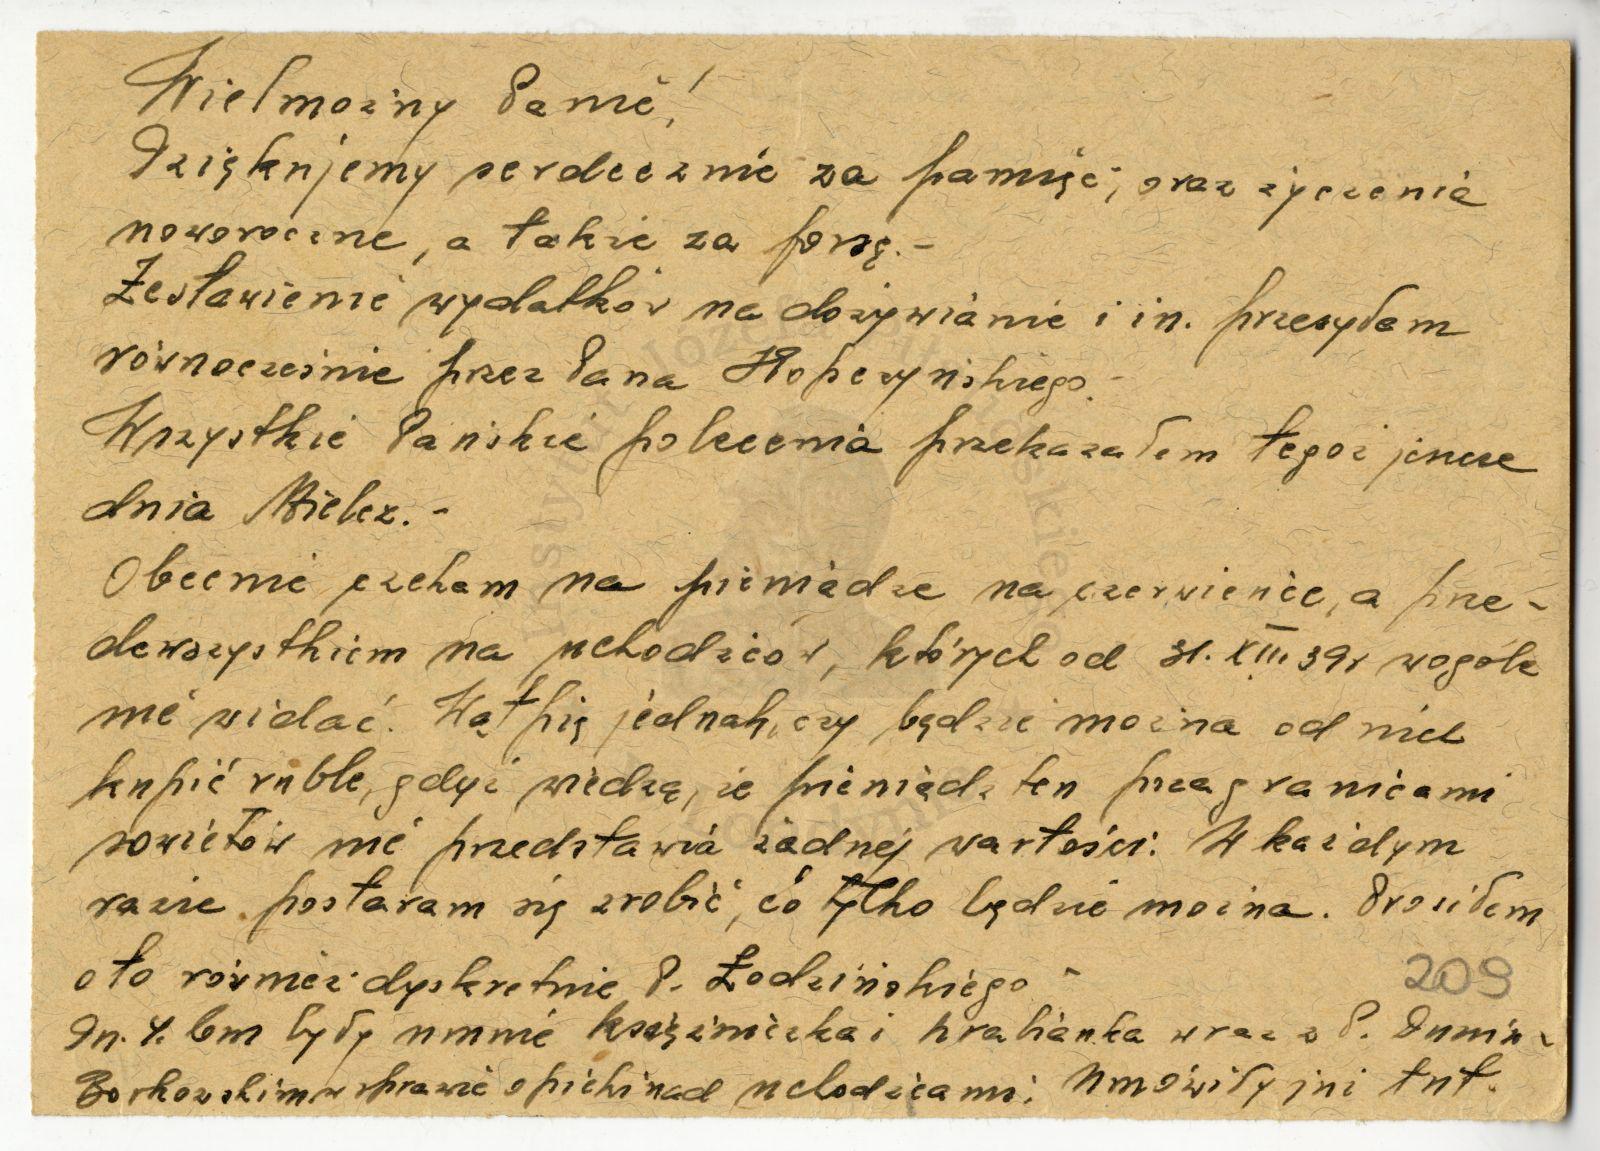 Wielmożny Panie!
Dziękujemy serdecznie za pamięć, oraz życzenia
noworoczne, a także za forsę.-
Zestawienie wydatków na dożywianie i in. przesyłam
równocześnie przez Pana Kopczyńskiego.-
Wszystkie Pańskie polecenia przekazałem tegoż jeszcze
dnia Mielcz.-
Obecnie czekam na pieniądze na czerwieńce, a prze-
dewszystkiem na uchodźców, których od 31.XII.39r wogóle
nie widać. Wątpię jednak, czy będzie można od nich
kupić ruble, gdyż wiedzą, że pieniądz ten poza granicami
sowietów nie przedstawia żadnej wartości. W każdym
razie postaram się zrobić, co tylko będzie można. Prosiłem
oto również dyskretnie P. Łodzińskiego-
209
Dn. 4. bm były u mnie księżniczka i hrabianka wraz z P. Dunin-
Borkowskim w sprawie opieki nad uchodźcami. Umówiły już tut.